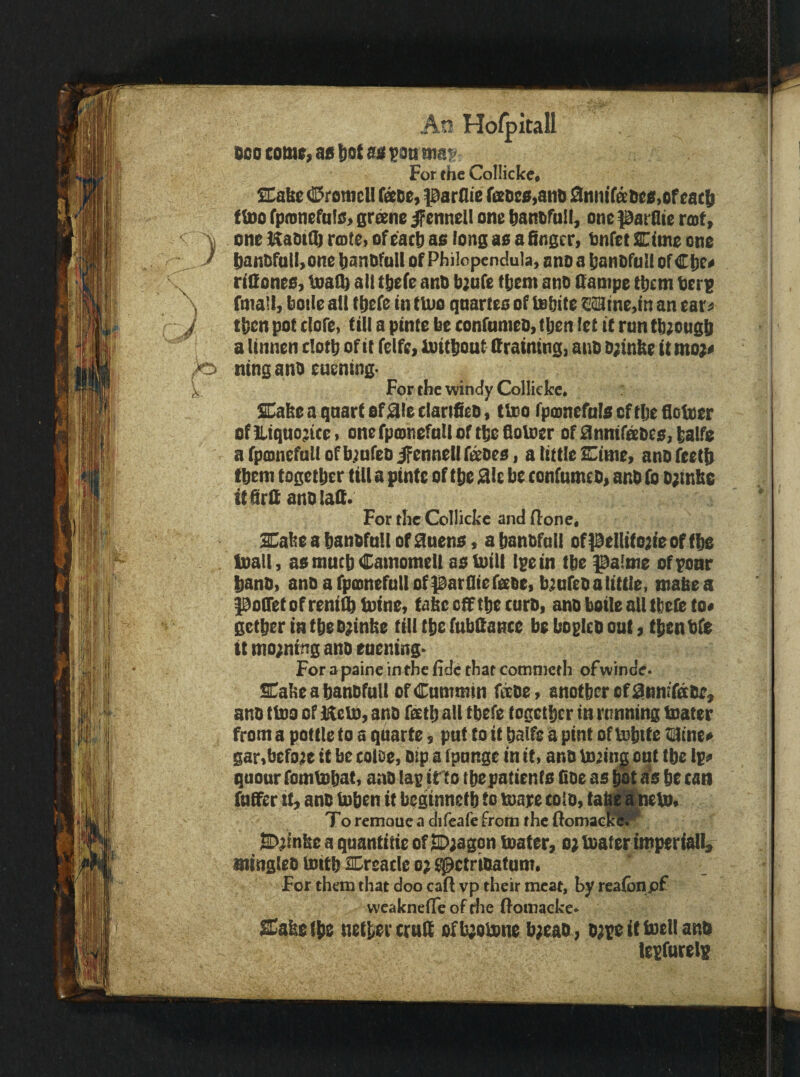 An Hoſpitall
doo come, as hot as you may.
For the Collicke.
Take Gromell ſéede, Parſlie ſéedes, and Anniſéedes, of each
two ſpoonefuls, gréene Fennell one handfull, one Parſlie root,
one Radiſh roote, of each as long as a finger, vnſet Time one
handfull, one handfull of Philopendula, and a handfull of Che-
riſtones, waſh all theſe and bruſe them and ſtampe them very
ſmall, boile all theſe in two quartes of white Wine, in an ear-
then pot cloſe, till a pinte be conſumed, then let it run through
a linnen cloth of it ſelfe, without ſtraining, and drinke it mor-
ning and euening.
For the windy Collicke.
Take a quart of Ale clarified, two ſpoonefuls of the flower
of Liquorice, one ſpoonefull of the flower of Anniſéedes, halfe
a ſpoonefull of bruſed Fennell ſéedes, a little Time, and ſeeth
them together till a pinte of the Ale be conſumed, and ſo drinke
it firſt and laſt.
For the Collicke and ſtone.
Take a handfull of Auens, a handfull of Pellitorie of the
wall, as much Camomell as will lye in the Palme of your
hand, and a ſpoonefull of Parſlie ſéede, bruſed a little, make a
Poſſet of reniſh wine, take off the curd, and boile all theſe to-
gether in the drinke till the ſubſtance be boyled out, then vſe
it morning and euening.
For a paine in the ſide that commeth of winde.
Take a handfull of Cummin ſéede, another of Anniſéede,
and two of Rew, and ſéeth all theſe together in running water
from a pottle to a quarte, put to it halfe a pint of white Uine-
gar, before it be colde, dip a ſpunge in it, and wring out the ly-
quour ſomwhat, and lay it to the patients ſide as hot as he can
ſuffer it, and when it beginneth to ware cold, take a new.
To remoue a diſeaſe from the ſtomacke.
Drinke a quantitie of Dragon water, or water imperiall,
mingled with Treacle or Metridatum.
For them that doo caſt vp their meat, by reaſon of
weakneſſe of the ſtomacke.
Take the nether cruſt of browne bread, drye it well and
leyſurely